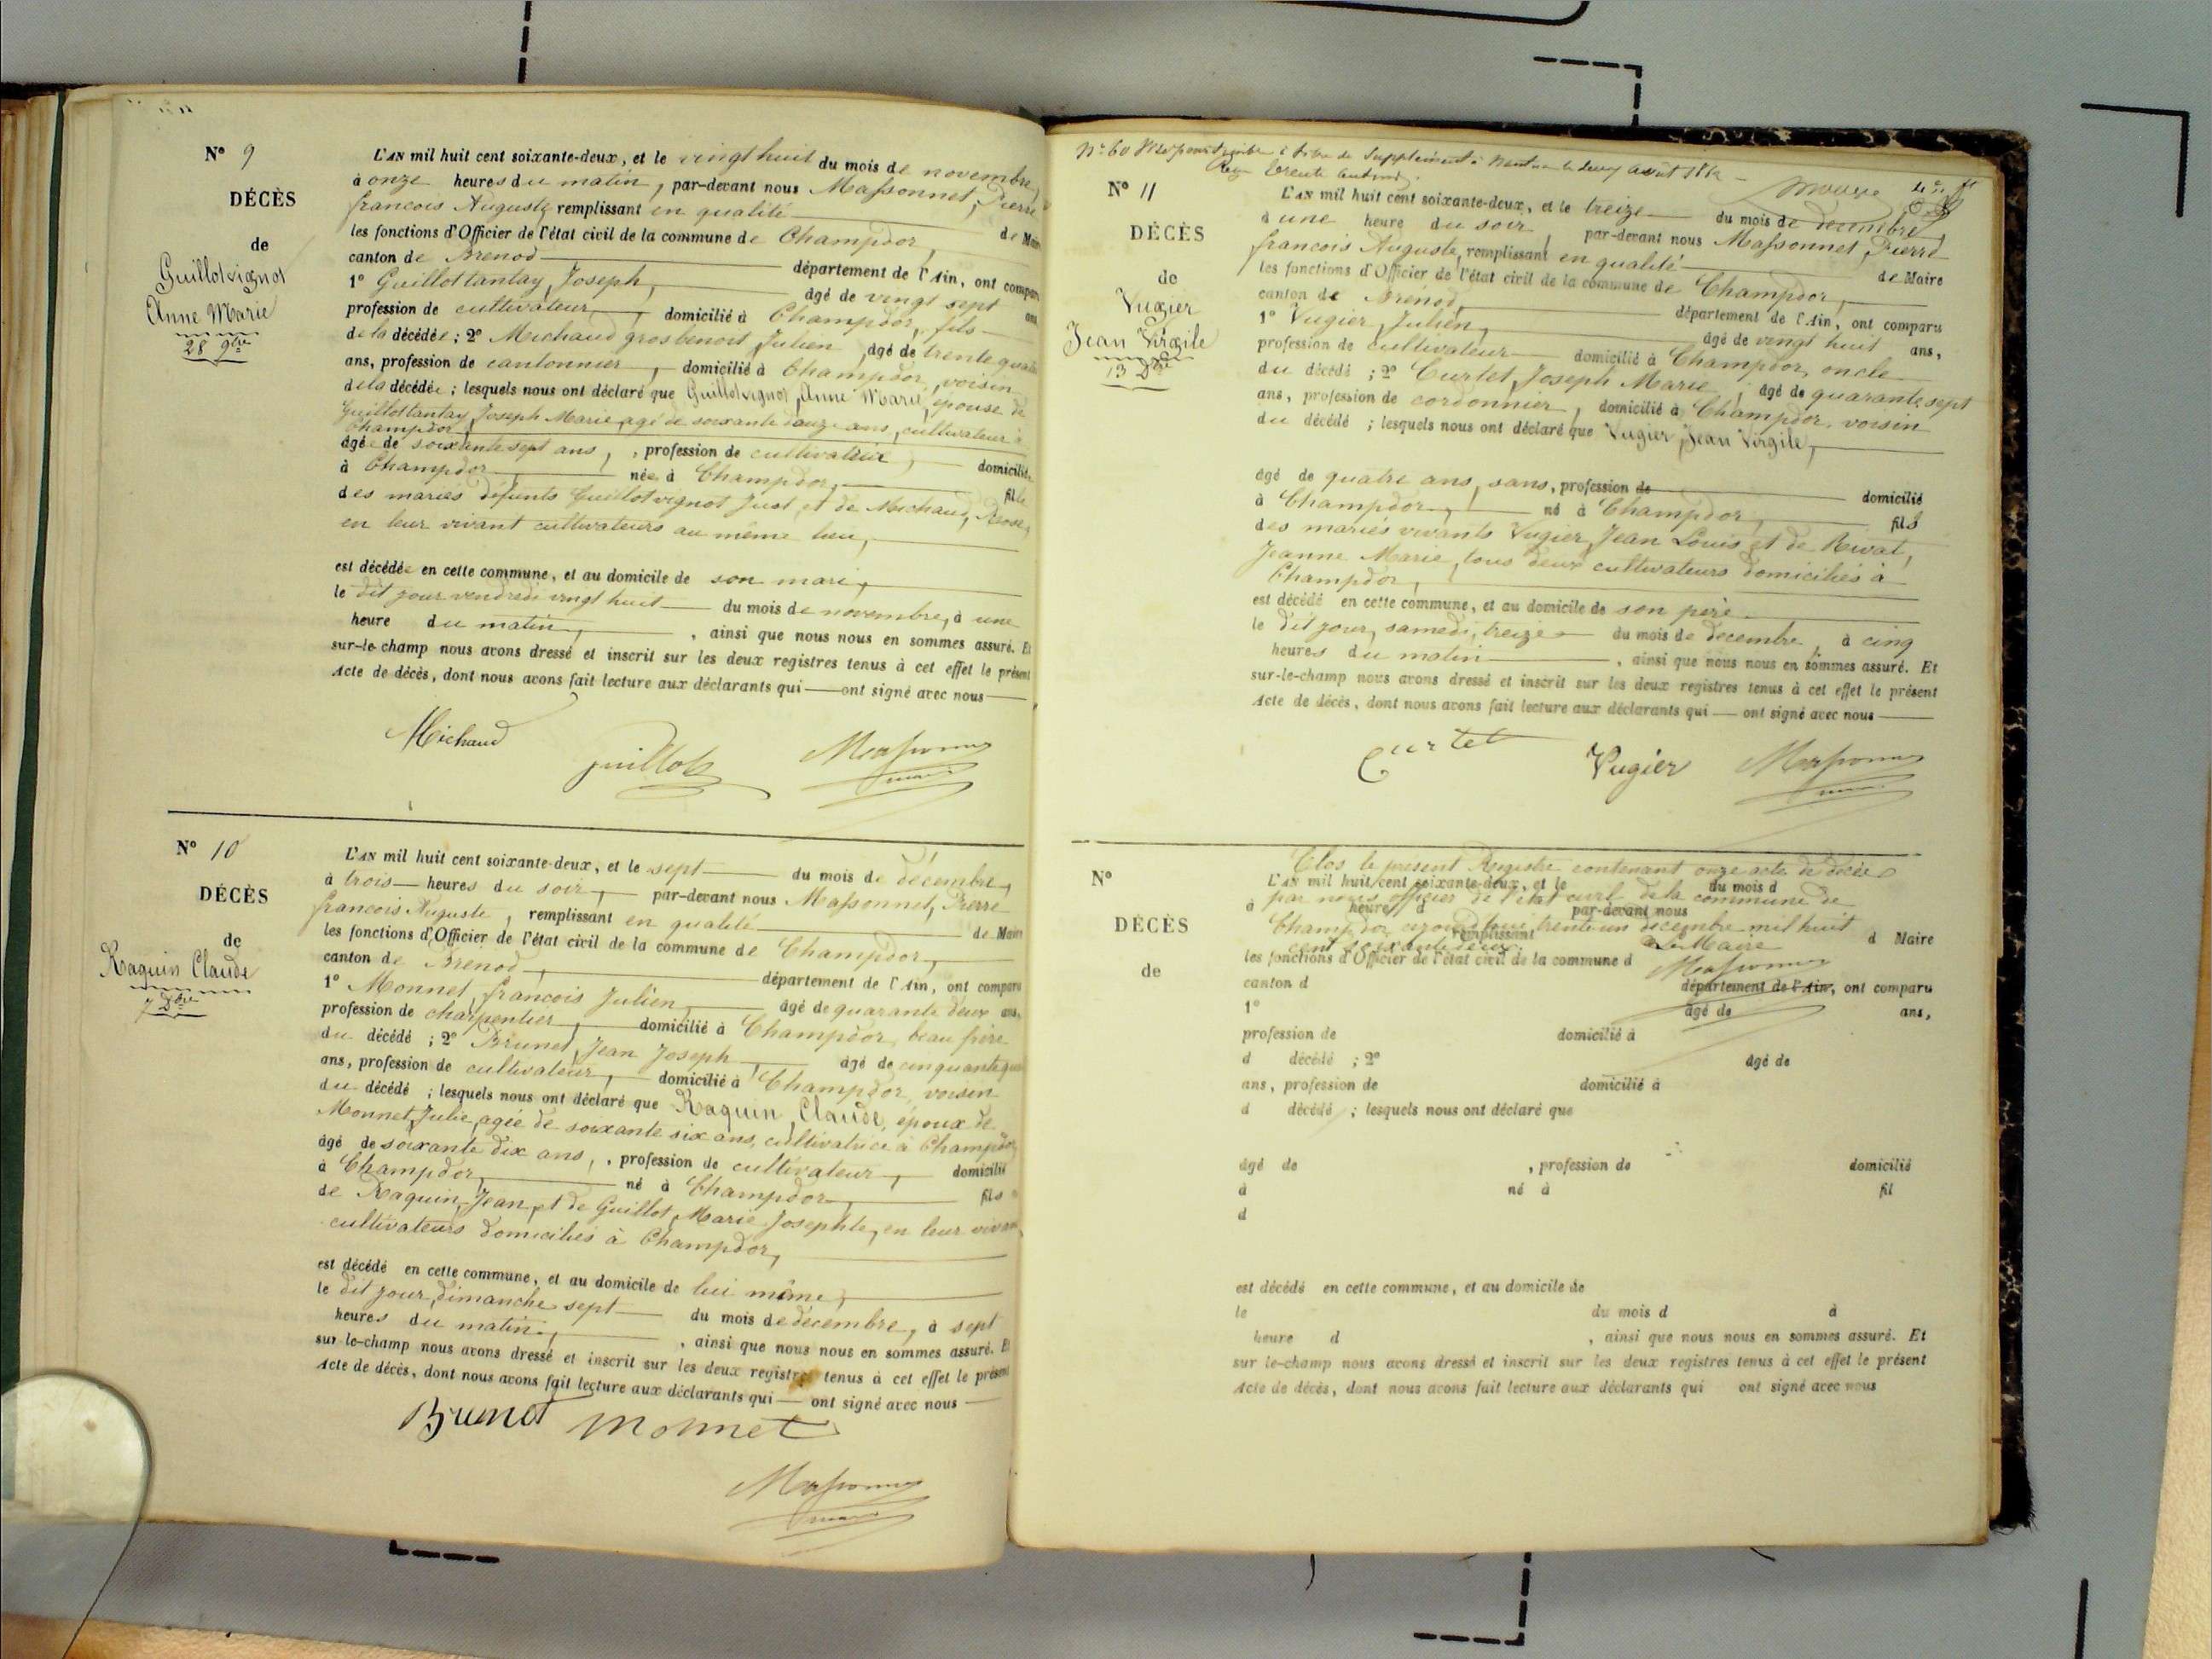 N° 9
DÉCÈS
de
Guillotvignot
Anne Marie
28 9bre
L'AN mil huit cent soixante-deux, et le vingt huit du mois de novembre,
à onze heures du matin, par-devant nous Massonnet, Pierre
francois Auguste remplissant en qualité de Maire
les fonctions d'Officier de l'état civil de la commune de Champdor,
canton de Brenod département de l'Ain, ont comparu
1° Guillottantay, Joseph, âgé de vingt sept ans,
profession de cultivateur, domicilié à Champdor, fils
de la décédée ; 2° Michaud grosbenoit Julien, âgé de trente quatre
ans, profession de cantonnier, domicilié à Champdor, voisin
de la décédée ; lesquels nous ont déclaré que Guillotvignot, Anne Marie, épouse de
Guillottantay, Joseph Marie, agé de soixante douze ans, cultivateur à
Champdor,
âgée de soixante sept ans, , profession de cultivatrice, domiciliée
à Champdor, née à Champdor, fille
des mariés défunts Guillotvignot Just, et de Michaud, Rose,
en leur vivant cultivateurs au même lieu,
est décédée en cette commune, et au domicile de son mari,
le dit jour vendredi vingt huit du mois de novembre, à une
heure du matin, , ainsi que nous nous en sommes assuré. Et
sur-le-champ nous avons dressé et inscrit sur les deux registres tenus à cet effet le présent
Acte de décès, dont nous avons fait lecture aux déclarants qui ont signé avec nous
Michaud
guillot
Massonnet
maire
N° 10
DÉCÈS
de
Raquin Claude
7 Xbre
L'AN mil huit cent soixante-deux, et le sept du mois de décembre,
à trois heures du soir, par-devant nous Massonnet, Pierre
francois Auguste, remplissant en qualité de Maire
les fonctions d'Officier de l'état civil de la commune de Champdor,
canton de Brenod, département de l'Ain, ont comparu
1° Monnet, francois Julien, âgé de quarante deux ans,
profession de charpentier, domicilié à Champdor, beau frère
du décédé ; 2° Brunet, Jean Joseph âgé de cinquante quatre
ans, profession de cultivateur, domicilié à Champdor, voisin
du décédé ; lesquels nous ont déclaré que Raquin, Claude, époux de
Monnet, Julie, agée de soixante six ans, cultivatrice à Champdor
âgé de soixante dix ans, , profession de cultivateur, domicilié
à Champdor, né à Champdor, fils
de Raquin, Jean, et de Guillot, Marie Josephte, en leur vivant
cultivateurs domiciliés à Champdor,
est décédé en cette commune, et au domicile de lui même,
le dit jour, dimanche sept du mois de décembre, à sept
heures du matin, , ainsi que nous nous en sommes assuré. Et
sur-le-champ nous avons dressé et inscrit sur les deux registres tenus à cet effet le présent
Acte de décès, dont nous avons fait lecture aux déclarants qui ont signé avec nous
Brunet Monnet
Massonnet
maire
N° 60 Visé pour timbre à titre de Supplément à Nantua le deux Août 1862
Reçu trente centimes.
N° 11
DÉCÈS
de
Vugier
Jean Virgile
13 Xbre
L'AN mil huit cent soixante-deux, et le treize du mois de décembre
à une heure du soir, par-devant nous Massonnet, Pierre
francois Auguste, remplissant en qualité de Maire
les fonctions d'Officier de l'état civil de la commune de Champdor,
canton de Brénod, département de l'Ain, ont comparu
1° Vugier, Julien, âgé de vingt huit ans,
profession de cultivateur domicilié à Champdor, oncle
du décédé ; 2° Curtet, Joseph Marie, âgé de quarante sept
ans, profession de cordonnier, domicilié à Champdor, voisin
du décédé ; lesquels nous ont déclaré que Vugier, Jean Virgile,
âgé de quatre ans, sans, profession de domicilié
à Champdor, né à Champdor, fils
des mariés vivants Vugier, Jean Louis et de Rivat,
Jeanne Marie, tous deux cultivateurs domiciliés à
Champdor,
est décédé en cette commune, et au domicile de son père
le dit jour, samedi, treize du mois de decembre, à cinq
heures du matin , ainsi que nous nous en sommes assuré. Et
sur-le-champ nous avons dressé et inscrit sur les deux registres tenus à cet effet le présent
Acte de décès, dont nous avons fait lecture aux déclarants qui ont signé avec nous
Curtet
Vugier
Massonnet
maire
Clos le présent Registre contenant onze actes de décès
N° L'AN mil huit cent soixante-deux, et le du mois d
DÉCÈS
de
par nous officier de l'état civil de la commune de
à heure d par-devant nous
Champdor, aujourd'hui trente un décembre mil huit
remplissant d Maire
cent soixante deux. Le Maire
les fonctions d'Officier de l'état civil de la commune d
Massonnet
canton d département de l'Ain, ont comparu
1° âgé de ans,
profession de domicilié à
d décédé ; 2° âgé de
ans, profession de domicilié à
d décédé ; lesquels nous ont déclaré que
âgé de , profession de domicilié
à né à fil
d
est décédé en cette commune, et au domicile de
le du mois d à
heure d , ainsi que nous nous en sommes assuré. Et
sur-le-champ nous avons dressé et inscrit sur les deux registres tenus à cet effet le présent
Acte de décès, dont nous avons fait lecture aux déclarants qui ont signé avec nous